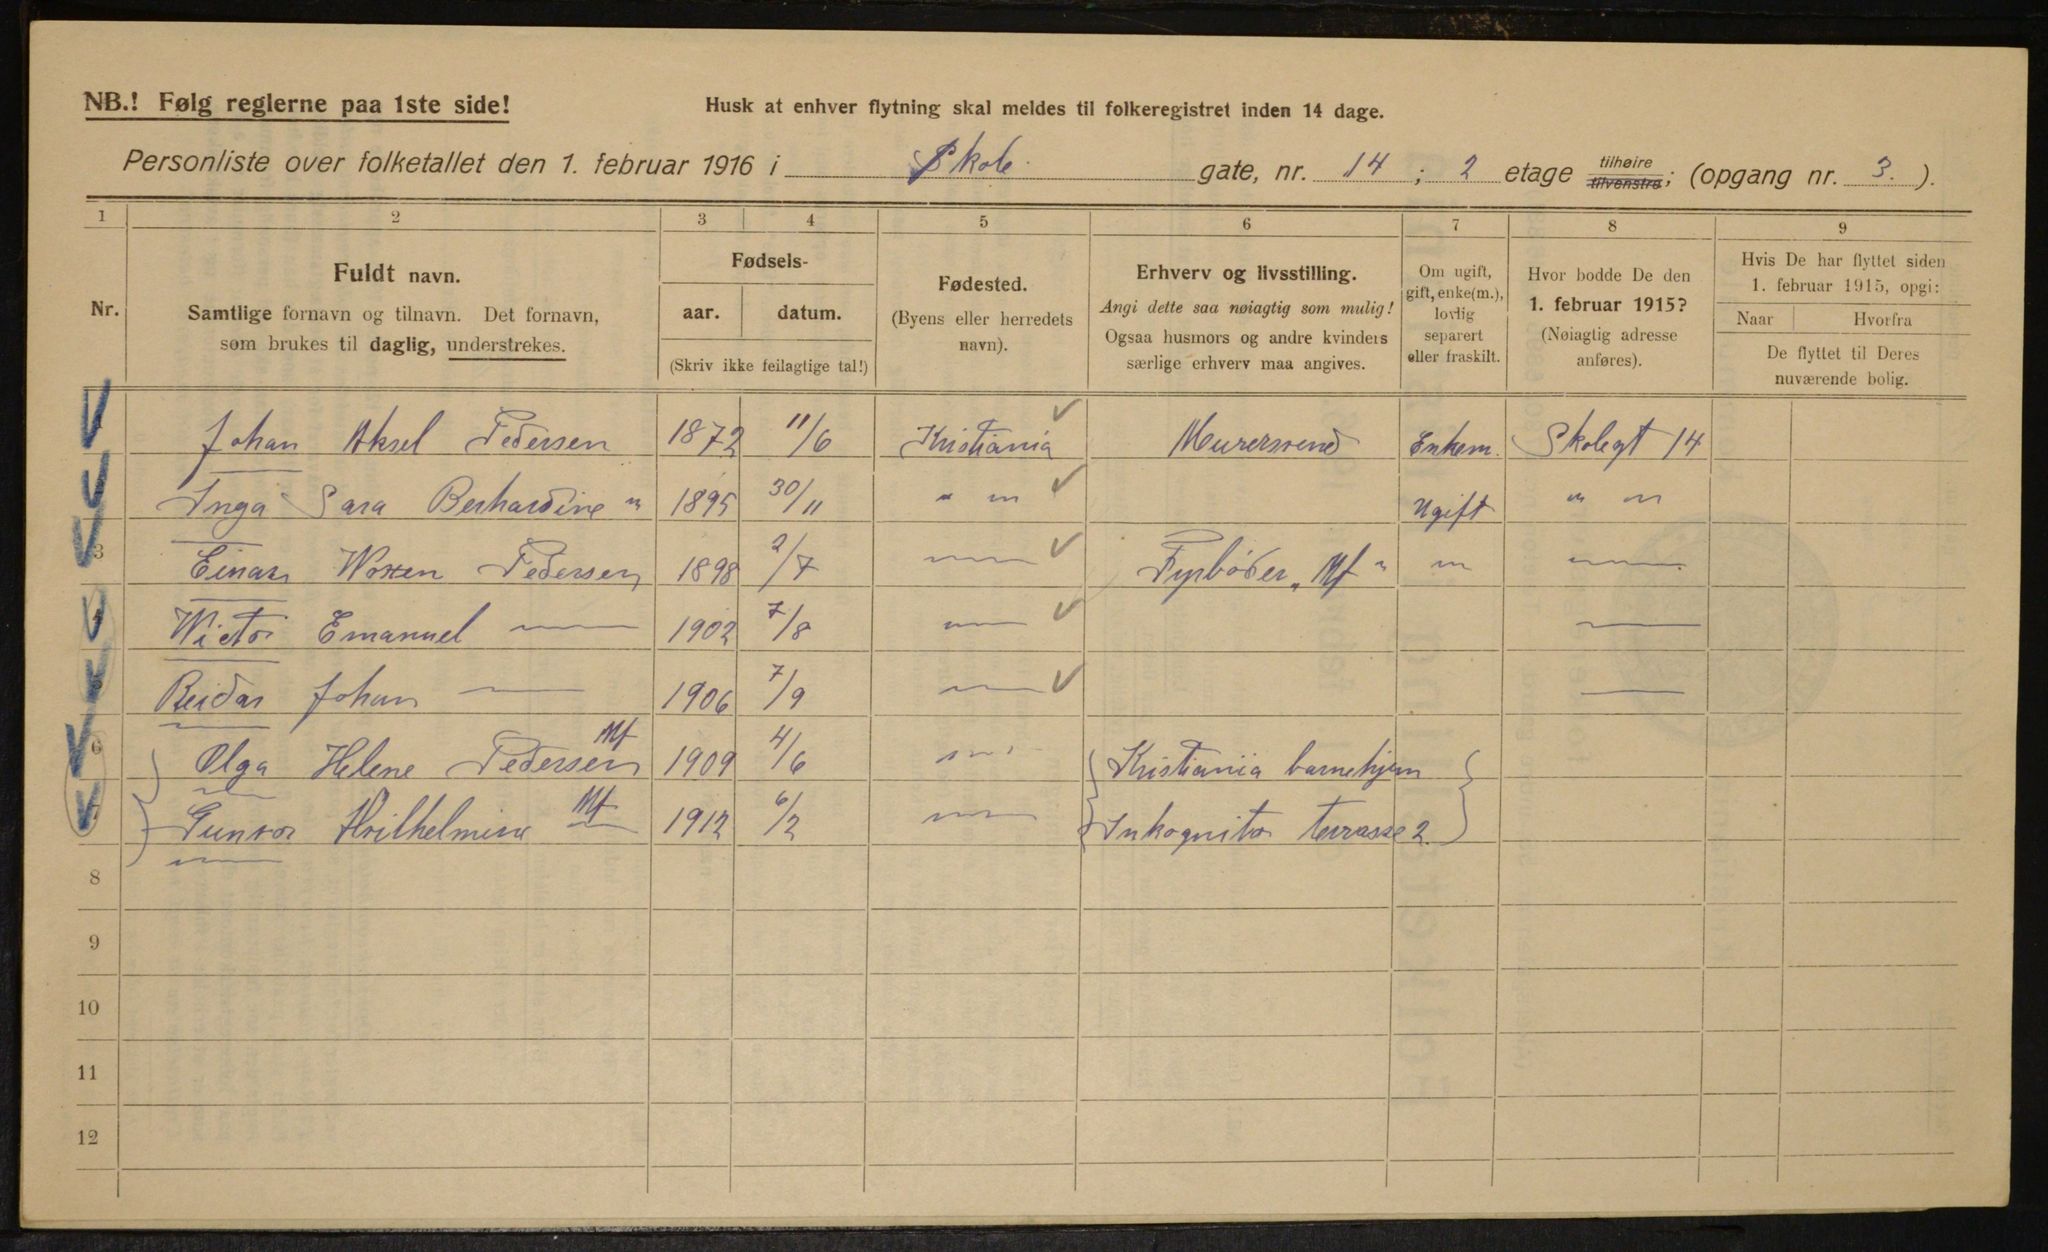 NB.! Følg reglerne paa 1ste side!
Husk at enhver flytning skal meldes til folkeregistret inden 14 dage.
Personliste over folketallet den 1. februar 1916 i Skole gate, nr. 14 ; 2 etage tilhøire tilvenstre; (opgang nr. 3. ).
1 2 3 4 5 6 7 8 9
Nr.
Fuldt navn.
Samtlige fornavn og tilnavn. Det fornavn,
som brukes til daglig, understrekes.
Fødsels-
aar. datum.
(Skriv ikke feilagtige tal!)
Fødested.
(Byens eller herredets
navn).
Erhverv og livsstilling.
Angi dette saa nøiagtig som mulig!
Ogsaa husmors og andre kvinders
særlige erhverv maa angives.
Om ugift,
gift, enke(m.),
lovlig
separert
eller fraskilt.
Hvor bodde De den
1. februar 1915?
(Nøiagtig adresse
anføres).
Hvis De har flyttet siden
1. februar 1915, opgi:
Naar Hvorfra
De flyttet til Deres
nuværende bolig.
Johan Aksel Pedersen 1872 11/6 Kristiania Murersvend Enkem. Skolegt 14
Inga Sara Berhardine " 1895 30/11 " " Ugift " "
3 Einar Pedersen 1898 2/7 " Fyrbøder " " "
Wictor Emanuel — 1902 7/8 " —
Reidar Johan — 1906 7/9 " —
6 Olga Helene Pedersen 1909 4/6 " Kristiania barnehjem
Gunvor Wilhelmine " 1912 6/2 " Inkognito terrasse 2.
8
9
10
11
12